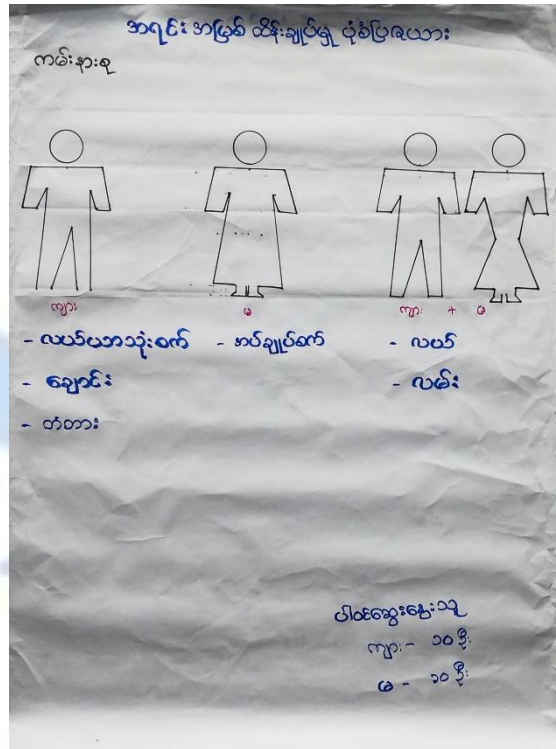 အရင်းအမြစ် ထိန်းချုပ်မှု ပုံစံပြဇယား
ကမ်းနားစု
ကျား
မ
ကျား + မ
- လယ်ယာသုံးစက် - အပ်ချုပ်စက် - လယ်
- ချောင်း - လမ်း
- တံတား
ပါဝင်ဆွေးနွေးသူ
ကျား - ၁၀ ဦး
မ - ၁၀ ဦး